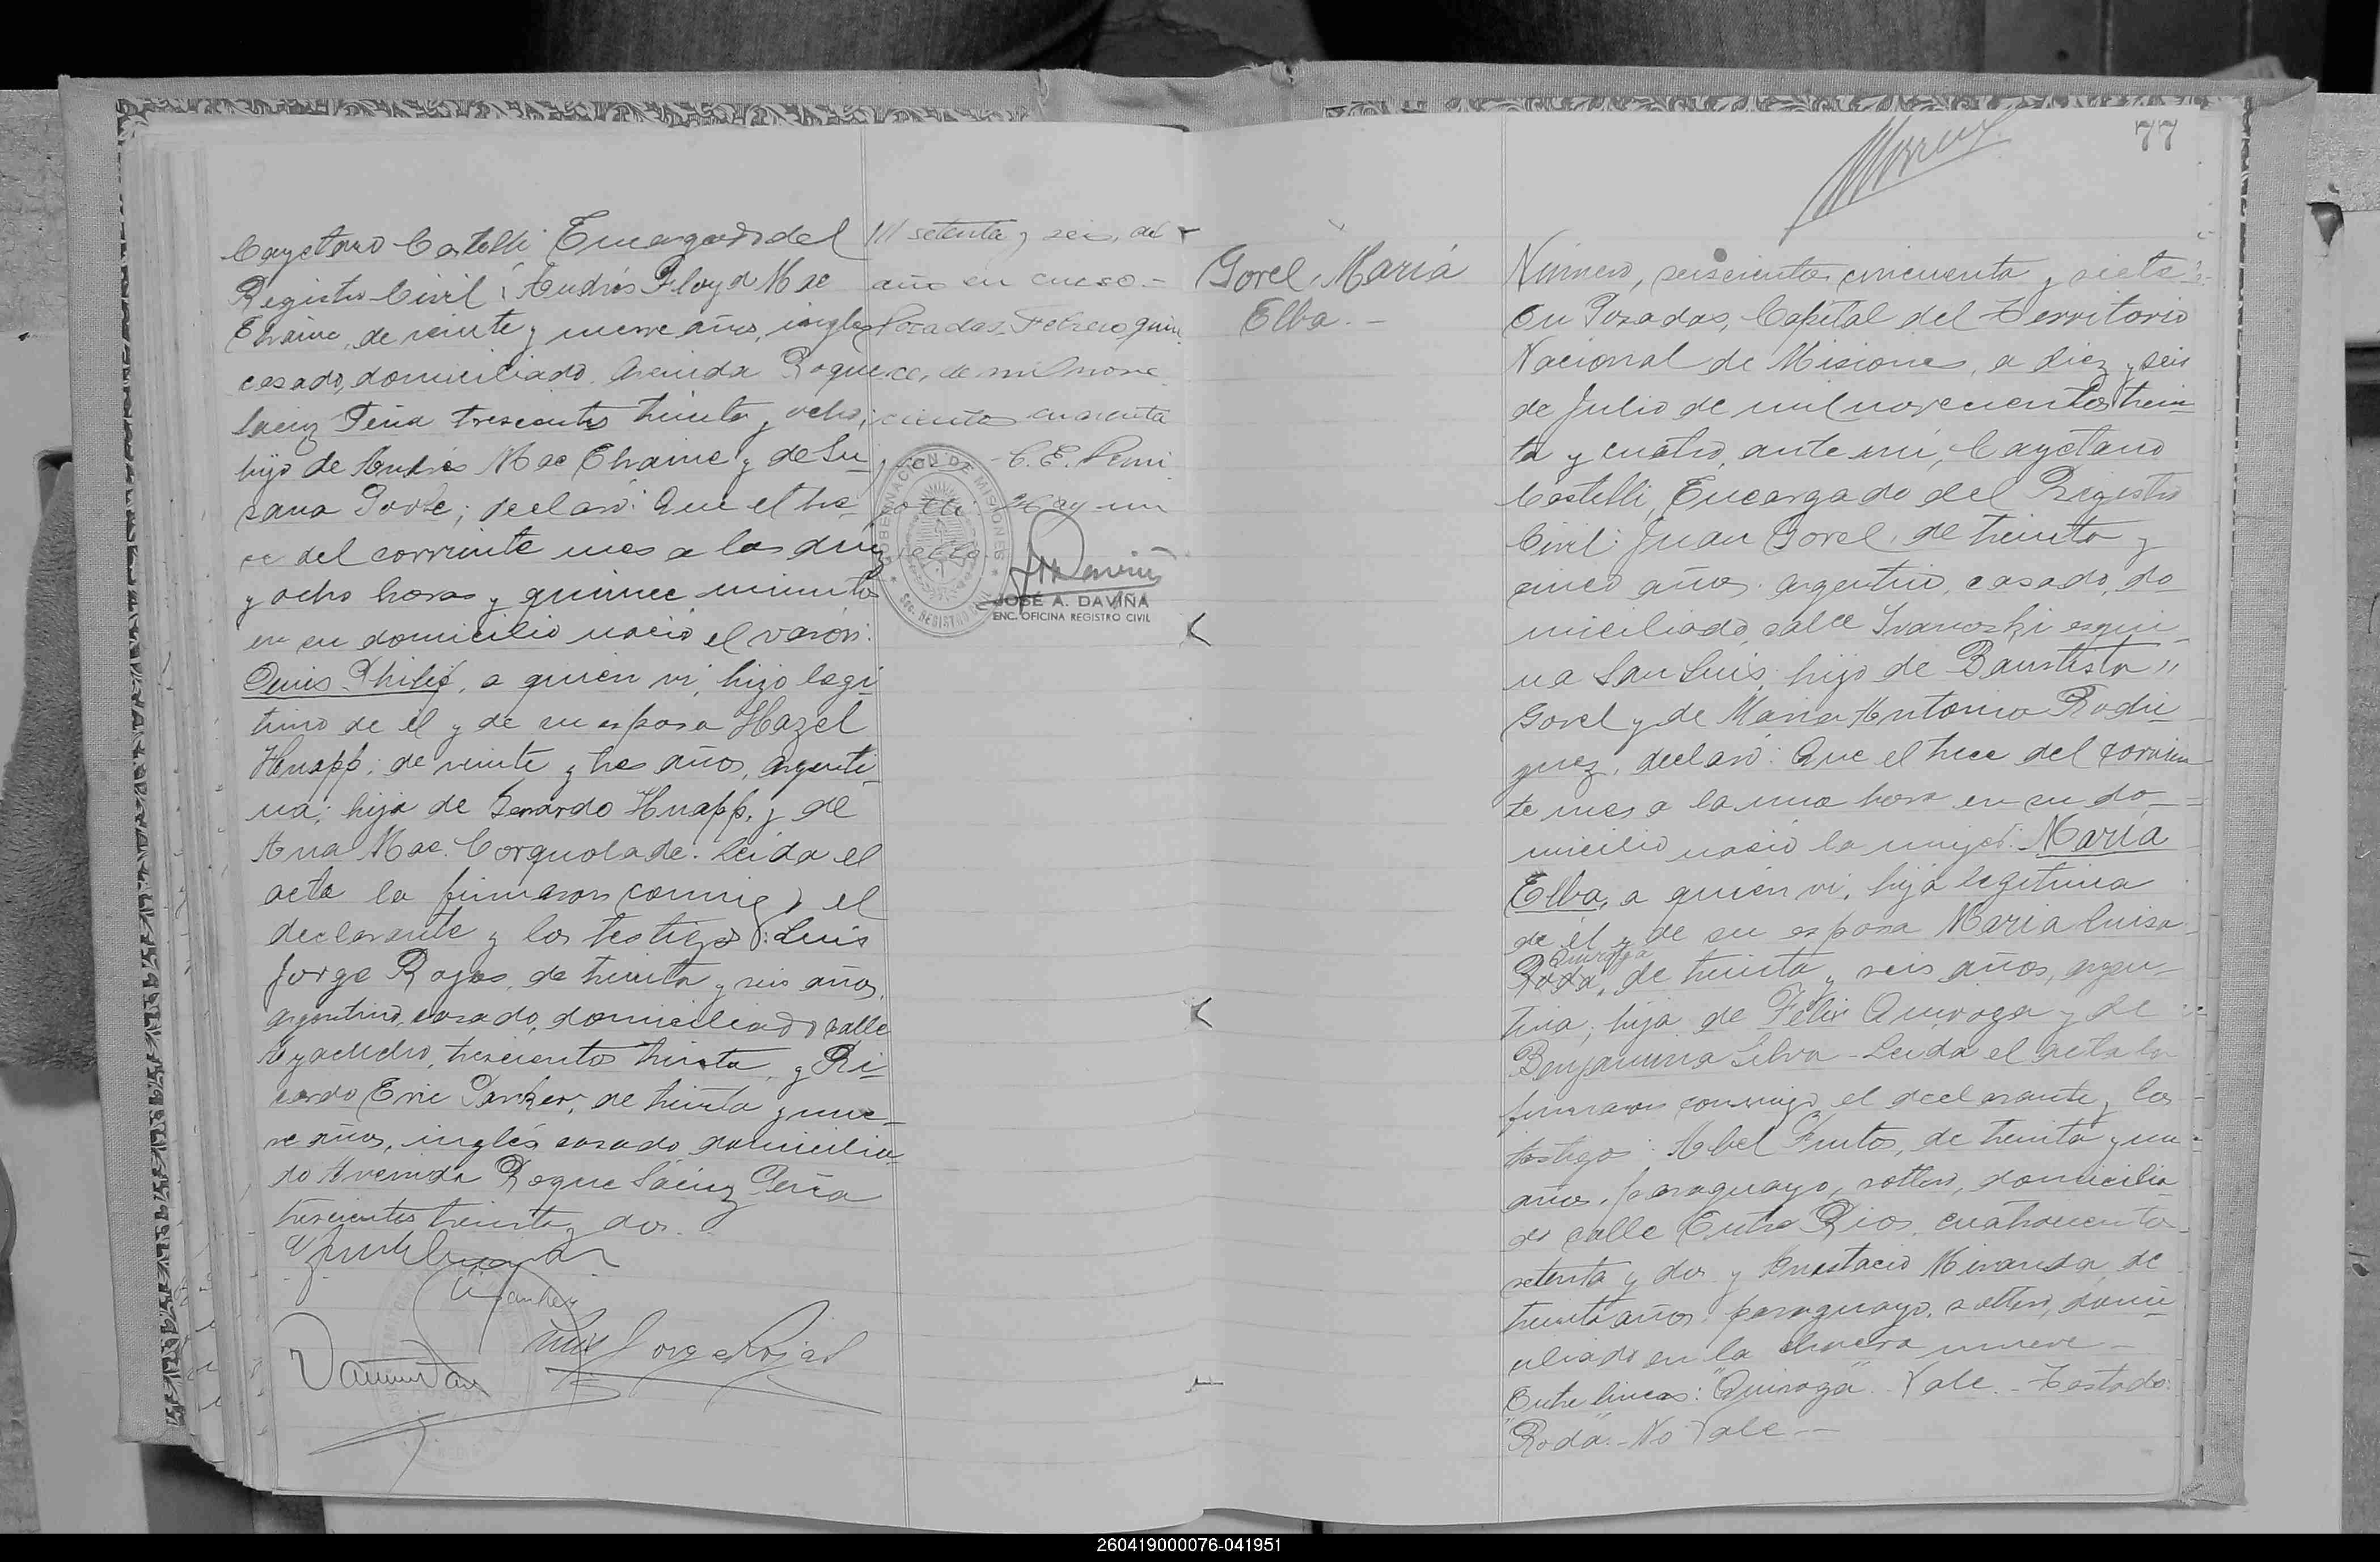 Cayetano Castelli Encargado del
Registro Civil: Andrés Floyd Mac
de veinte y nueve años, inglés
casado, domiciliado Avenida Roque
Saenz Peña trescientos treinta y ocho;
hijo de Andrés Mac y de Su
sana declaró: Que el tre
ce del corriente mes a las diez
y ocho horas y quince minutos
en su domicilio nació el varón:
Philip, a quien vi, hijo legi
timo de él y de su esposa Hazel
de veinte y tres años, argenti
na; hija de Gerardo y de
Ana Mac. Leida el
acta la firmaron conmigo el
declarante y los testigos: Luis
Jorge Rojas, de treinta y seis años,
argentino, casado, domiciliado calle
Ayacucho, trescientos treinta, y Ri
cardo Eric Parker, de treinta y nue-
ve años, inglés casado domicilia
do Avenida Roque Sáenz Peña
trescientos treinta y dos.
Luis Jorge Rojas
/// setenta y seis, del
año en curso.-
Posadas, Febrero quin
ce, de mil nove
cientos cuarenta
C. E.
Hay un
sello
GOBERNACION DE MISIONES
JOSÉ A. DAVIÑA
ENC. OFICINA REGISTRO CIVIL
77
Gorel, María
Elba.-
Número, seiscientos cincuenta y siete
En Posadas, Capital del Territorio
Nacional de Misiones, a diez y seis
de Julio de mil novecientos trein
ta y cuatro, ante mí, Cayetano
Castelli, Encargado del Registro
Civil: Juan Gorel, de treinta y
cinco años, argentino, casado, do
miciliado calle Ivanoski esqui-
na San Luis; hijo de Bautista "
Gorel y de Maria Antonia Rodri
guez, declaró: Que el trece del corrien
te mes a la una hora en su do-
micilio nació la mujer: María
Elba, a quien vi, hija legitima
de él y de su esposa Maria Luisa
Quiroga
Roda, de treinta y seis años, argen-
tina, hija de Felix Quiroga y de
Benjamina Silva - Leida el acta la
firmaron conmigo el declarante y los
testigos: Abel Frutos, de treinta y un
años, paraguayo, soltero, domicilia
do calle Entre Rios, cuatrocientos
setenta y dos y Anastacio Miranda, de
treinta años, paraguayo, soltero, domi
ciliado en la chacra nueve -
Entre lineas: "Quiroga" Vale. - Testado:
"Roda" - No Vale -
260419000076-041951